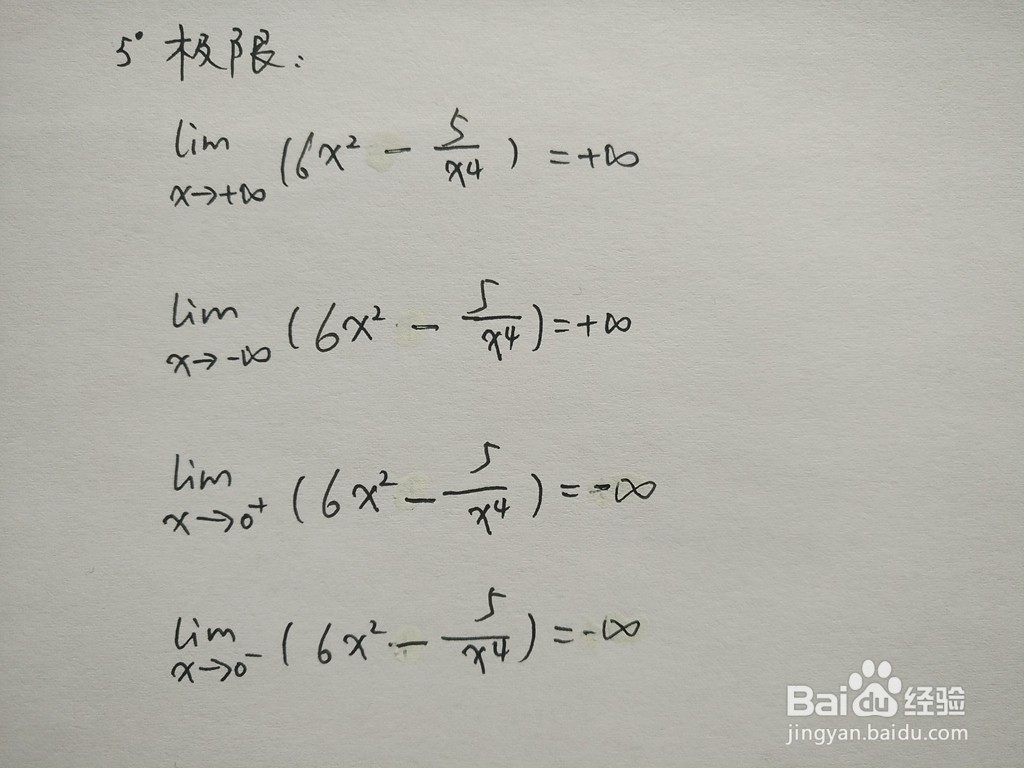 5° 极限:
lim x→+∞ (6x² - 5/x⁴) = +∞
lim x→-∞ (6x² - 5/x⁴) = +∞
lim x→0⁺ (6x² - 5/x⁴) = -∞
lim x→0⁻ (6x² - 5/x⁴) = -∞
Baidu经验
jingyan.baidu.com